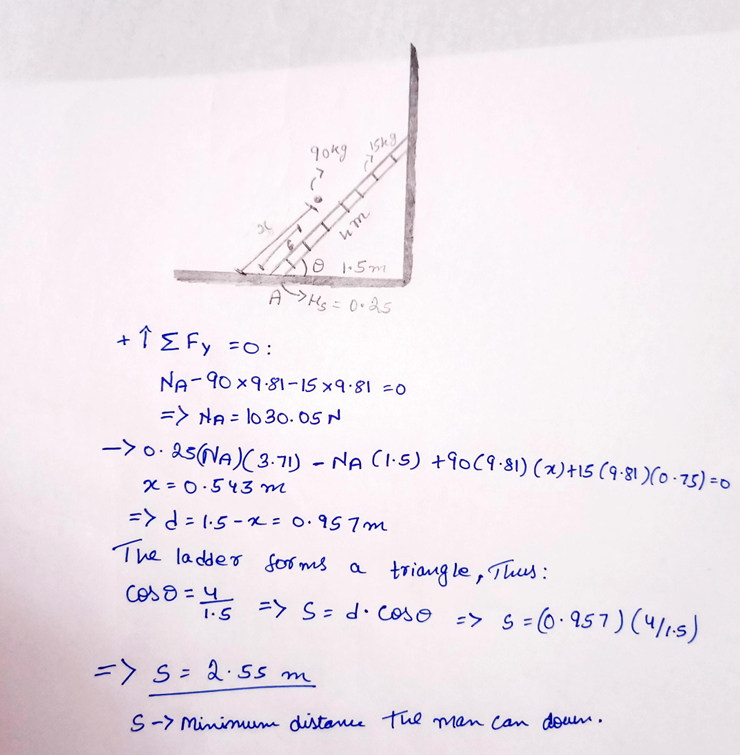 90kg
15kg
x
4m
θ 1.5m
A → μs = 0.25
+ ↑ Σ Fy = 0:
NA - 90 x 9.81 - 15 x 9.81 = 0
=> NA = 1030.05 N
-> 0.25(NA)(3.71) - NA (1.5) + 90(9.81)(x) + 15(9.81)(0.75) = 0
x = 0.543 m
=> d = 1.5 - x = 0.957m
The ladder forms a triangle, Thus:
cosθ = 4/1.5 => S = d. cosθ => S = (0.957)(4/1.5)
=> S = 2.55 m
S -> Minimum distance the man can down.